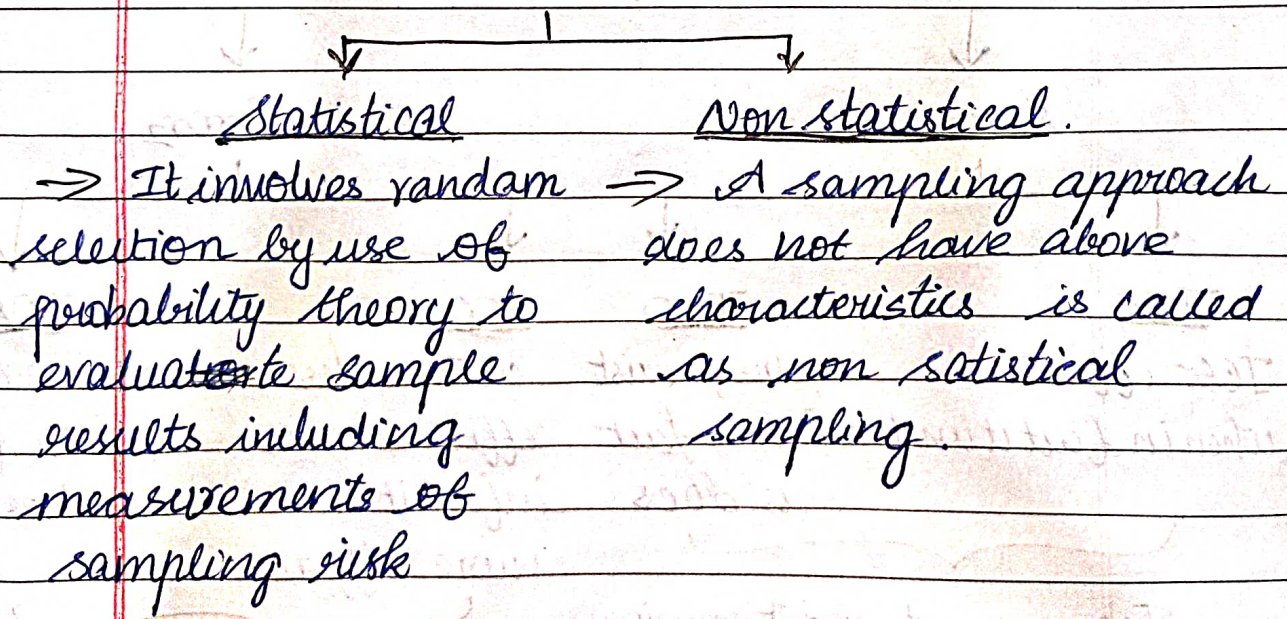 Statistical
→ It involves random
selection by use of
probability theory to
evaluate sample
results including
measurements of
sampling risk
Non statistical.
→ A sampling approach
does not have above
characteristics is called
as non satistical
sampling.